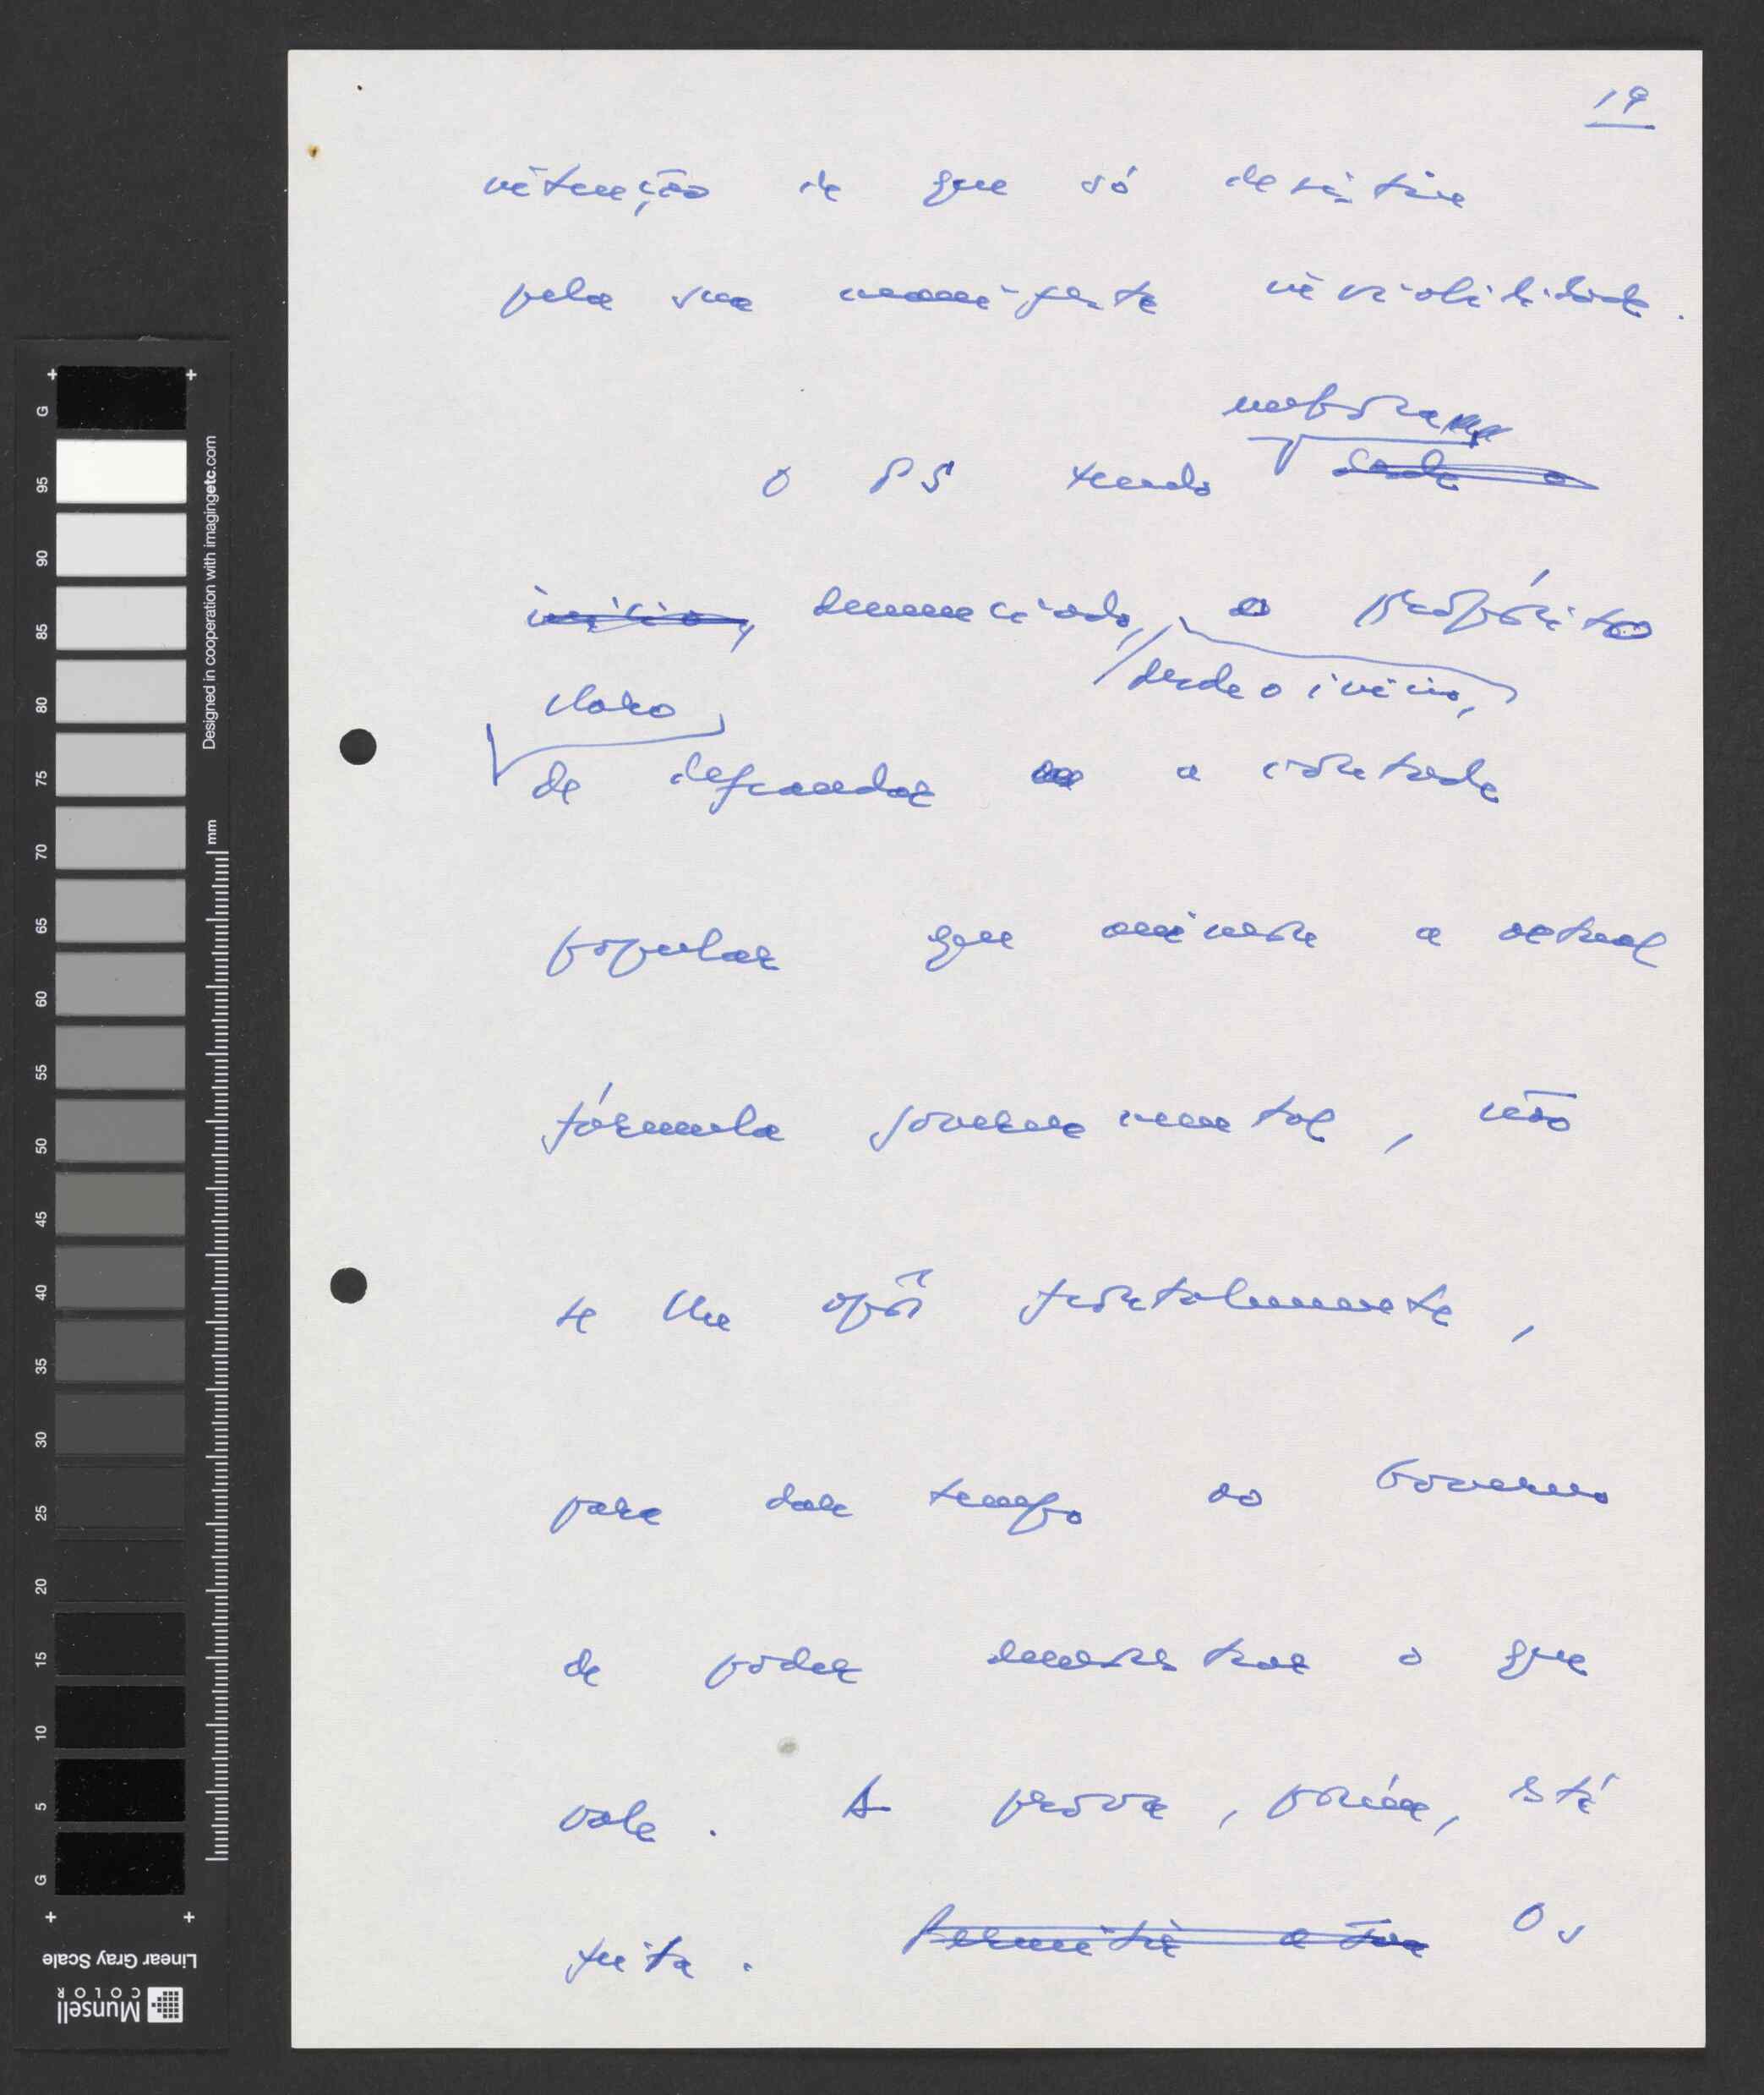 19
intenção de que só desistiu
pela sua manifesta inviabilidade.
embora
O PS tendo desde o
início, denunciado, o propósito
desde o início,
claro
de defraudar a vontade
popular que animou a actual
fórmula governamental, não
se lhe opôs frontalmente,
para dar tempo ao Governo
de poder demonstrar o que
vale. A prova, porém, está
feita. Permitir a Os
G 95 90 85 80 75 70 65 60 55 50 45 40 35 30 25 20 15 10 5 G
Designed in cooperation with imagingetc.com
mm
Linear Gray Scale
Munsell
COLOR